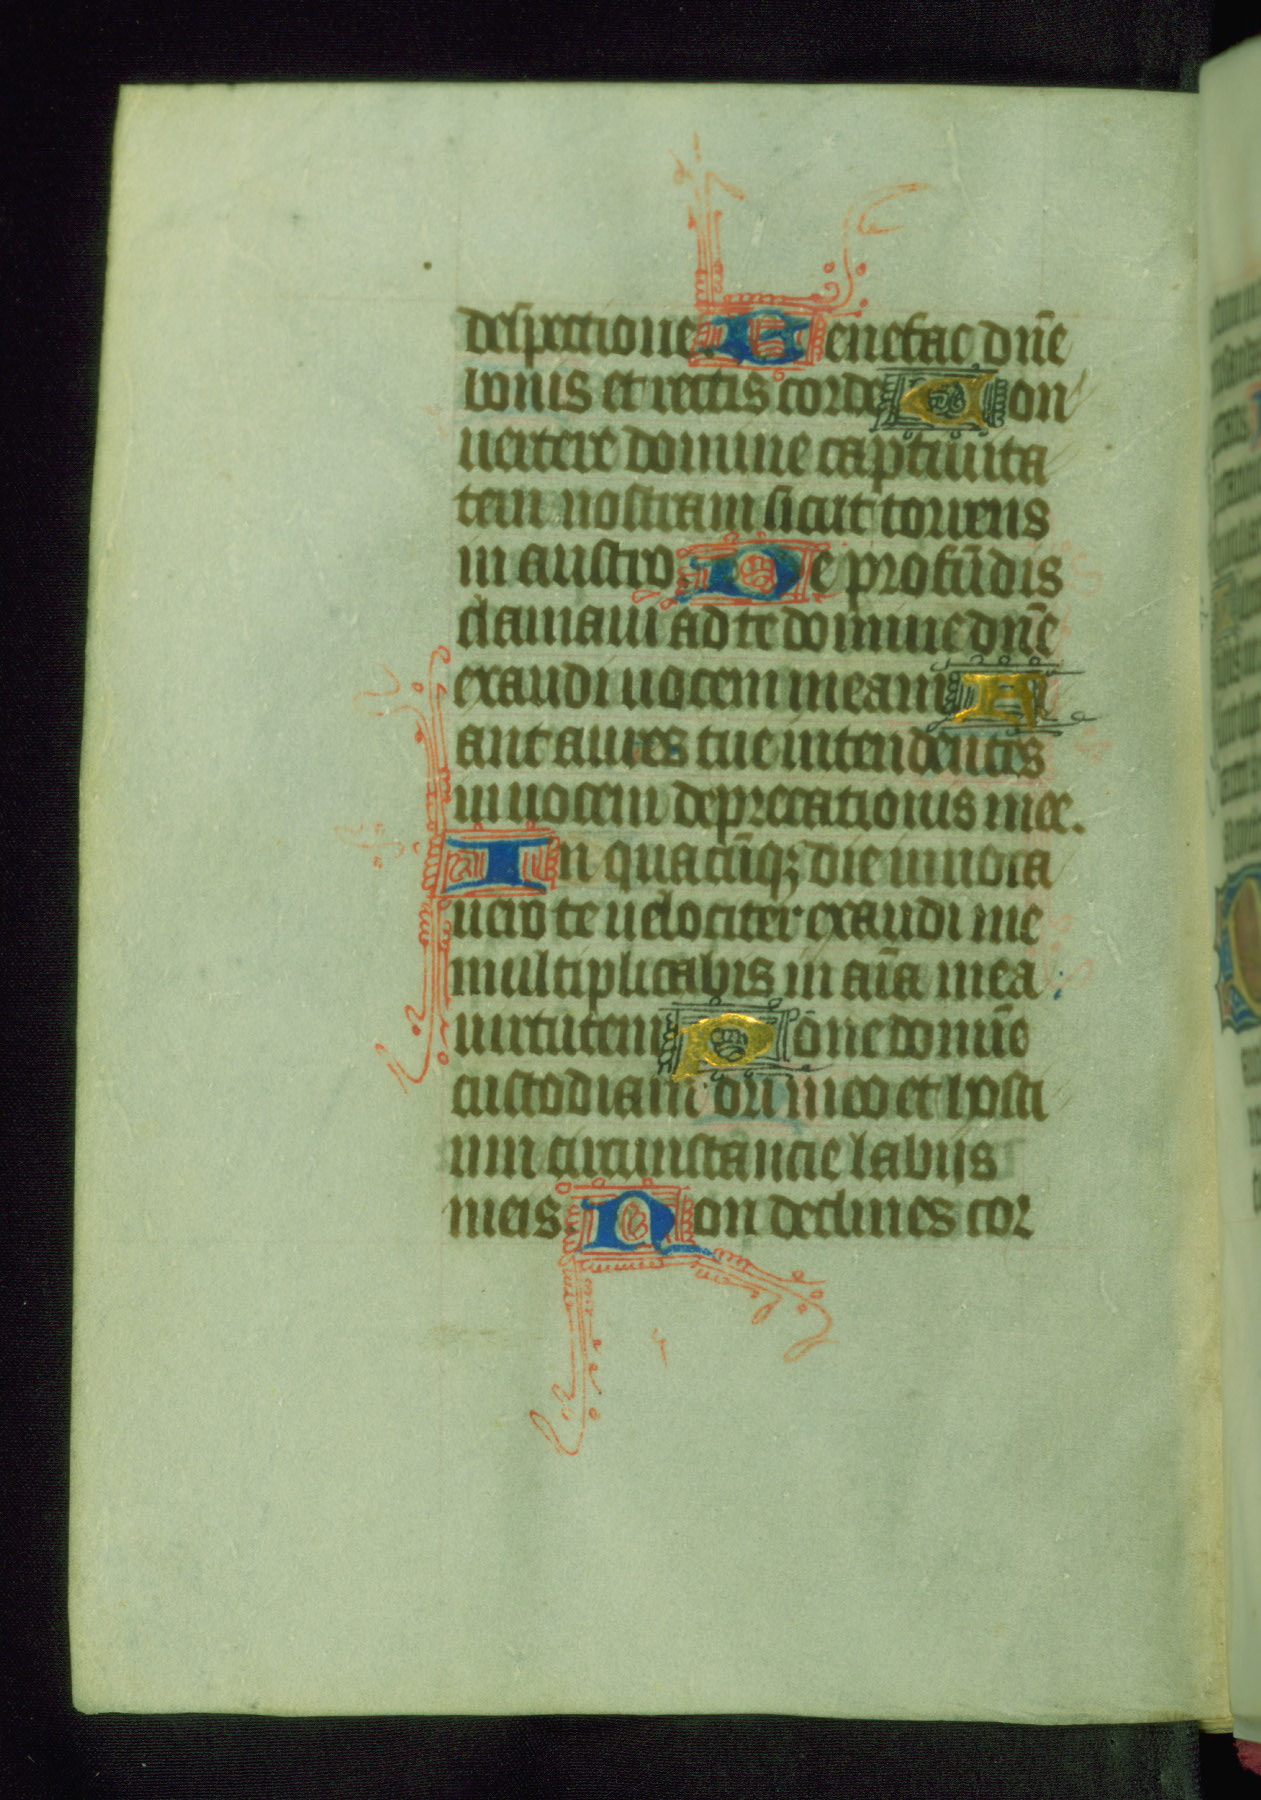 despectione Benefac dn̄e
bonis et rectis corde Con
uertere domine captiuita
tem nostram sicut torrens
in austro De profūdis
clamaui ad te domine dn̄e
exaudi uocem meam Fi
ant aures tue intendentes
in uocem deprecationis mee.
In quacūq; die inuoca
uero te uelociter exaudi me
multiplicabis in aīa mea
uirtutem Pone domīe
custodiam ori meo et hosti
um circumstancie labiis
meis Non declines cor